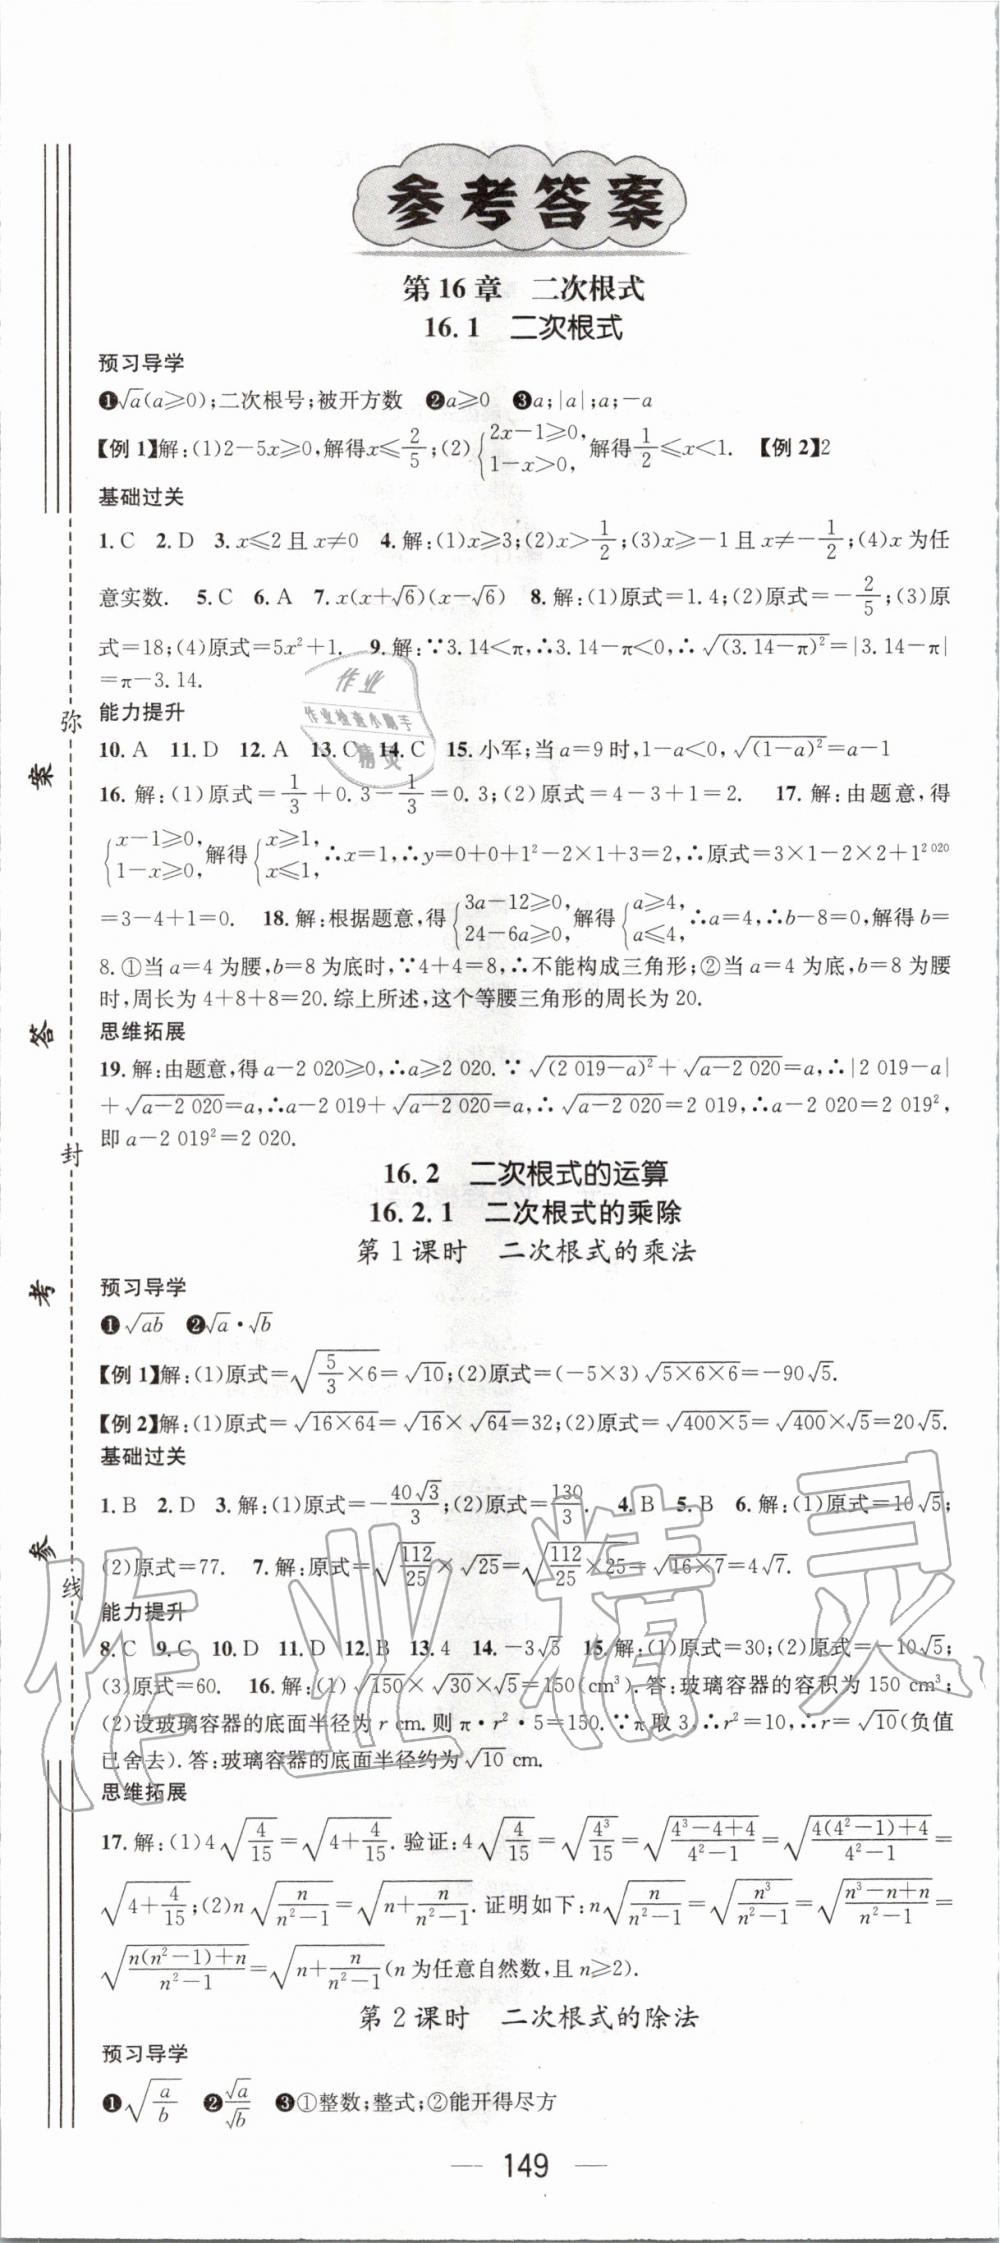 参考答案
第16章 二次根式
16.1 二次根式
预习导学
❶√a(a≥0);二次根号;被开方数 ❷a≥0 ❸a;|a|;a;-a
【例1】解:(1)2-5x≥0,解得x≤2/5;(2){2x-1≥0, 1-x>0, 解得1/2≤x<1. 【例2】2
基础过关
1. C 2. D 3. x≤2且x≠0 4. 解:(1)x≥3;(2)x>1/2;(3)x≥-1且x≠-1/2;(4)x为任
意实数. 5. C 6. A 7. x(x+√6)(x-√6) 8. 解:(1)原式=1.4;(2)原式=-2/5;(3)原
式=18;(4)原式=5x²+1. 9. 解:∵3.14<π,∴3.14-π<0,∴√(3.14-π)²=|3.14-π|
=π-3.14.
能力提升
10. A 11. D 12. A 13. C 14. C 15. 小军;当a=9时,1-a<0,√(1-a)²=a-1
16. 解:(1)原式=1/3+0.3-1/3=0.3;(2)原式=4-3+1=2. 17. 解:由题意,得
{x-1≥0, 1-x≥0, 解得{x≥1, x≤1, ∴x=1,∴y=0+0+1²-2×1+3=2,∴原式=3×1-2×2+1²⁰²⁰
=3-4+1=0. 18. 解:根据题意,得{3a-12≥0, 24-6a≥0, 解得{a≥4, a≤4, ∴a=4,∴b-8=0,解得b=
8.①当a=4为腰,b=8为底时,∵4+4=8,∴不能构成三角形;②当a=4为底,b=8为腰
时,周长为4+8+8=20.综上所述,这个等腰三角形的周长为20.
思维拓展
19. 解:由题意,得a-2 020≥0,∴a≥2 020.∵√(2 019-a)²+√(a-2 020)=a,∴|2 019-a|
+√(a-2 020)=a,∴a-2 019+√(a-2 020)=a,∴√(a-2 020)=2 019,∴a-2 020=2 019²,
即a-2 019²=2 020.
16.2 二次根式的运算
16.2.1 二次根式的乘除
第1课时 二次根式的乘法
预习导学
❶√(ab) ❷√a·√b
【例1】解:(1)原式=√(5/3×6)=√10;(2)原式=(-5×3)√(5×6×6)=-90√5.
【例2】解:(1)原式=√(16×64)=√16×√64=32;(2)原式=√(400×5)=√400×√5=20√5.
基础过关
1. B 2. D 3. 解:(1)原式=-40√3/3;(2)原式=130/3. 4. B 5. B 6. 解:(1)原式=10√5;
(2)原式=77. 7. 解:原式=√(112/25)×√25=√(112/25×25)=√(16×7)=4√7.
能力提升
8. C 9. C 10. D 11. D 12. B 13. 4 14. -3√5 15. 解:(1)原式=30;(2)原式=-10√5;
(3)原式=60. 16. 解:(1)√150×√30×√5=150(cm³).答:玻璃容器的容积为150 cm³;
(2)设玻璃容器的底面半径为r cm.则π·r²·5=150.∵π取3,∴r²=10,∴r=√10(负值
已舍去).答:玻璃容器的底面半径约为√10 cm.
思维拓展
17. 解:(1)4√(4/15)=√(4+4/15).验证:4√(4/15)=√(4³/15)=√((4³-4+4)/(4²-1))=√((4(4²-1)+4)/(4²-1))=
√(4+4/15);(2)n√(n/(n²-1))=√(n+n/(n²-1)).证明如下:n√(n/(n²-1))=√(n³/(n²-1))=√((n³-n+n)/(n²-1))=
√((n(n²-1)+n)/(n²-1))=√(n+n/(n²-1))(n为任意自然数,且n≥2).
第2课时 二次根式的除法
预习导学
❶√(a/b) ❷√a/√b ❸①整数;整式;②能开得尽方
149
弥
封
线
案
答
考
参
作业
作业检查小助手
精灵
作业精灵